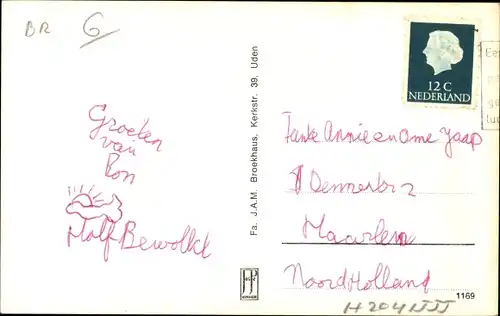 BR
6
12 C
NEDERLAND
Groeten
van
Ron
Half Bewolkt
Fa. J.A.M. Broekhaus, Kerkstr. 39, Uden
Tante Annie en Ome Jaap
Haarlem
Noord Holland
1169